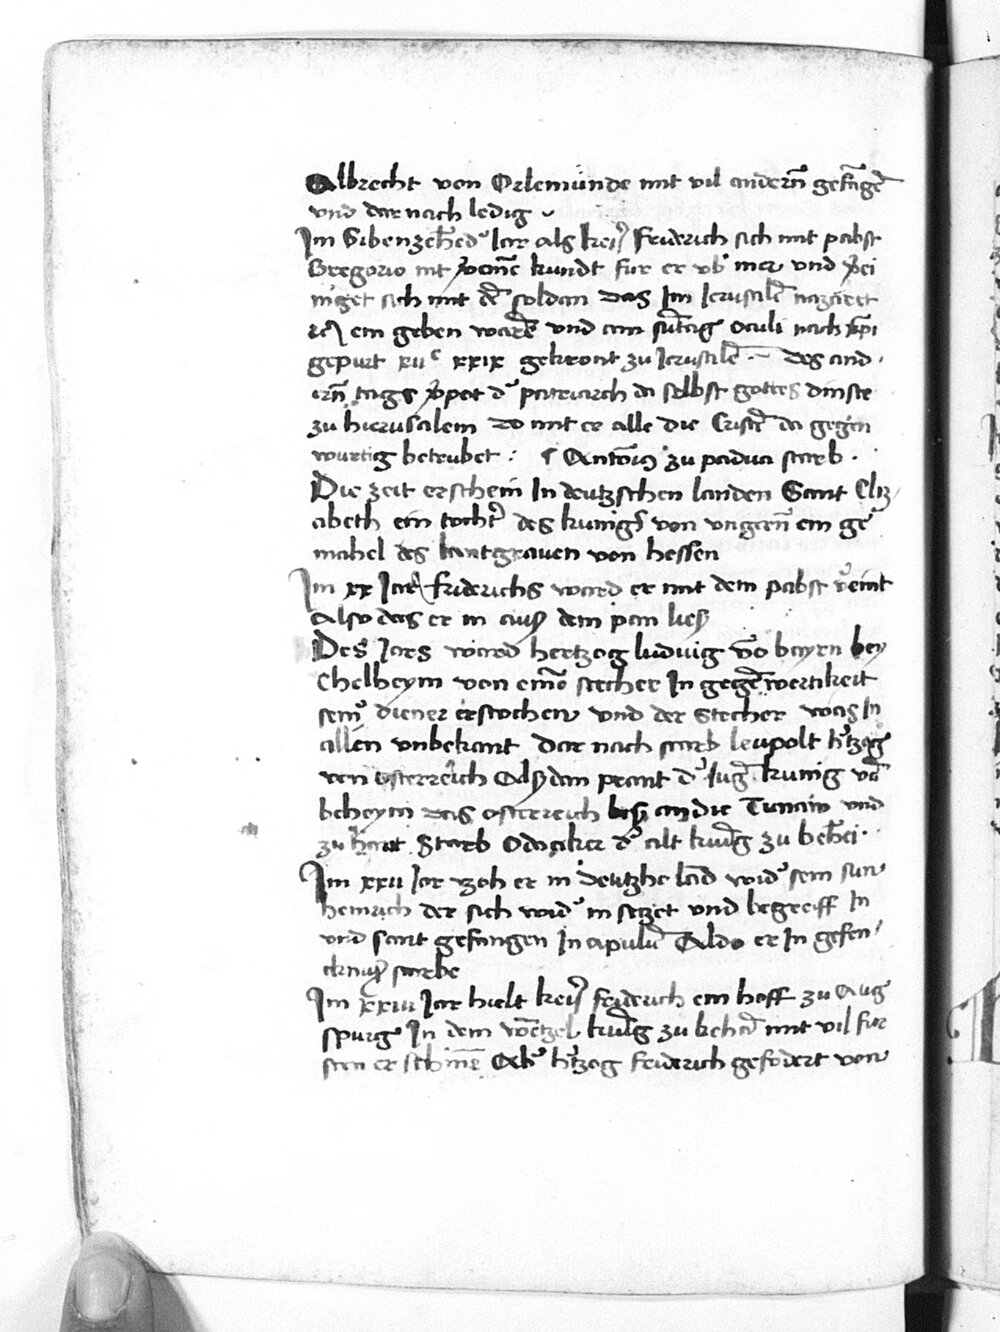 Albrecht von Orlemunde mit vil andern̄ gefāgē
vnd dar nach ledig
Im Sibenzehēd' Iar als keiß Friderich sich mit pabst
Gregorio nit kundt fur er vb' mer vnd
niget sich mit dē soldan das Im Ierusalē nazaret
rc ein geben warē vnd am sūtag oculi nach xp̄i
gepurt xiic xxix gekront zu Ierusalē des and
irn̄ tags d' patriarch da selbst gottes dinste
zu hierusalem do mit er alle die Cristē da gegen
wurtig betrubet : ¶ Antōiꝰ zu padua starb .
Die zeit erschein In deutzschen landen Sant Eliz
abeth ein tocht' des kunigs von vngern̄ ein ge
mahel des lantgrauen von hessen
Im xx Iar Friderichs ward er mit dem pabst v'eint
Also das er in auß dem pan ließ
Des Iars ward hertzog ludwig vō bayrn bey
Chelheym von einē stecher In gegēwertikeit
sein' diener erstochen vnd der Stecher was In
allen vnbekant Dar nach starb leupolt h'tzog
von osterreich Alßdan prant d' Iūg kunig vō
beheym das osterreich biß an die Tunaw vnd
zu hant Starb Odacker d' alt kunīg zu behei .
Im xxii Iar zoh er in deutzhe lād wid' sein sun
heinrich der sich wid' in setzet vnd begreiff In
vnd sant gefangen In apuliē Aldo er In gefen
cknuß starbe
Im xxiii Iar hielt keiß friderich ein hoff zu Aug
spurg In dem Wētzel kunīg zu behā mit vil fur
sten er schinē Ab' h'tzog Friderich gefodert von